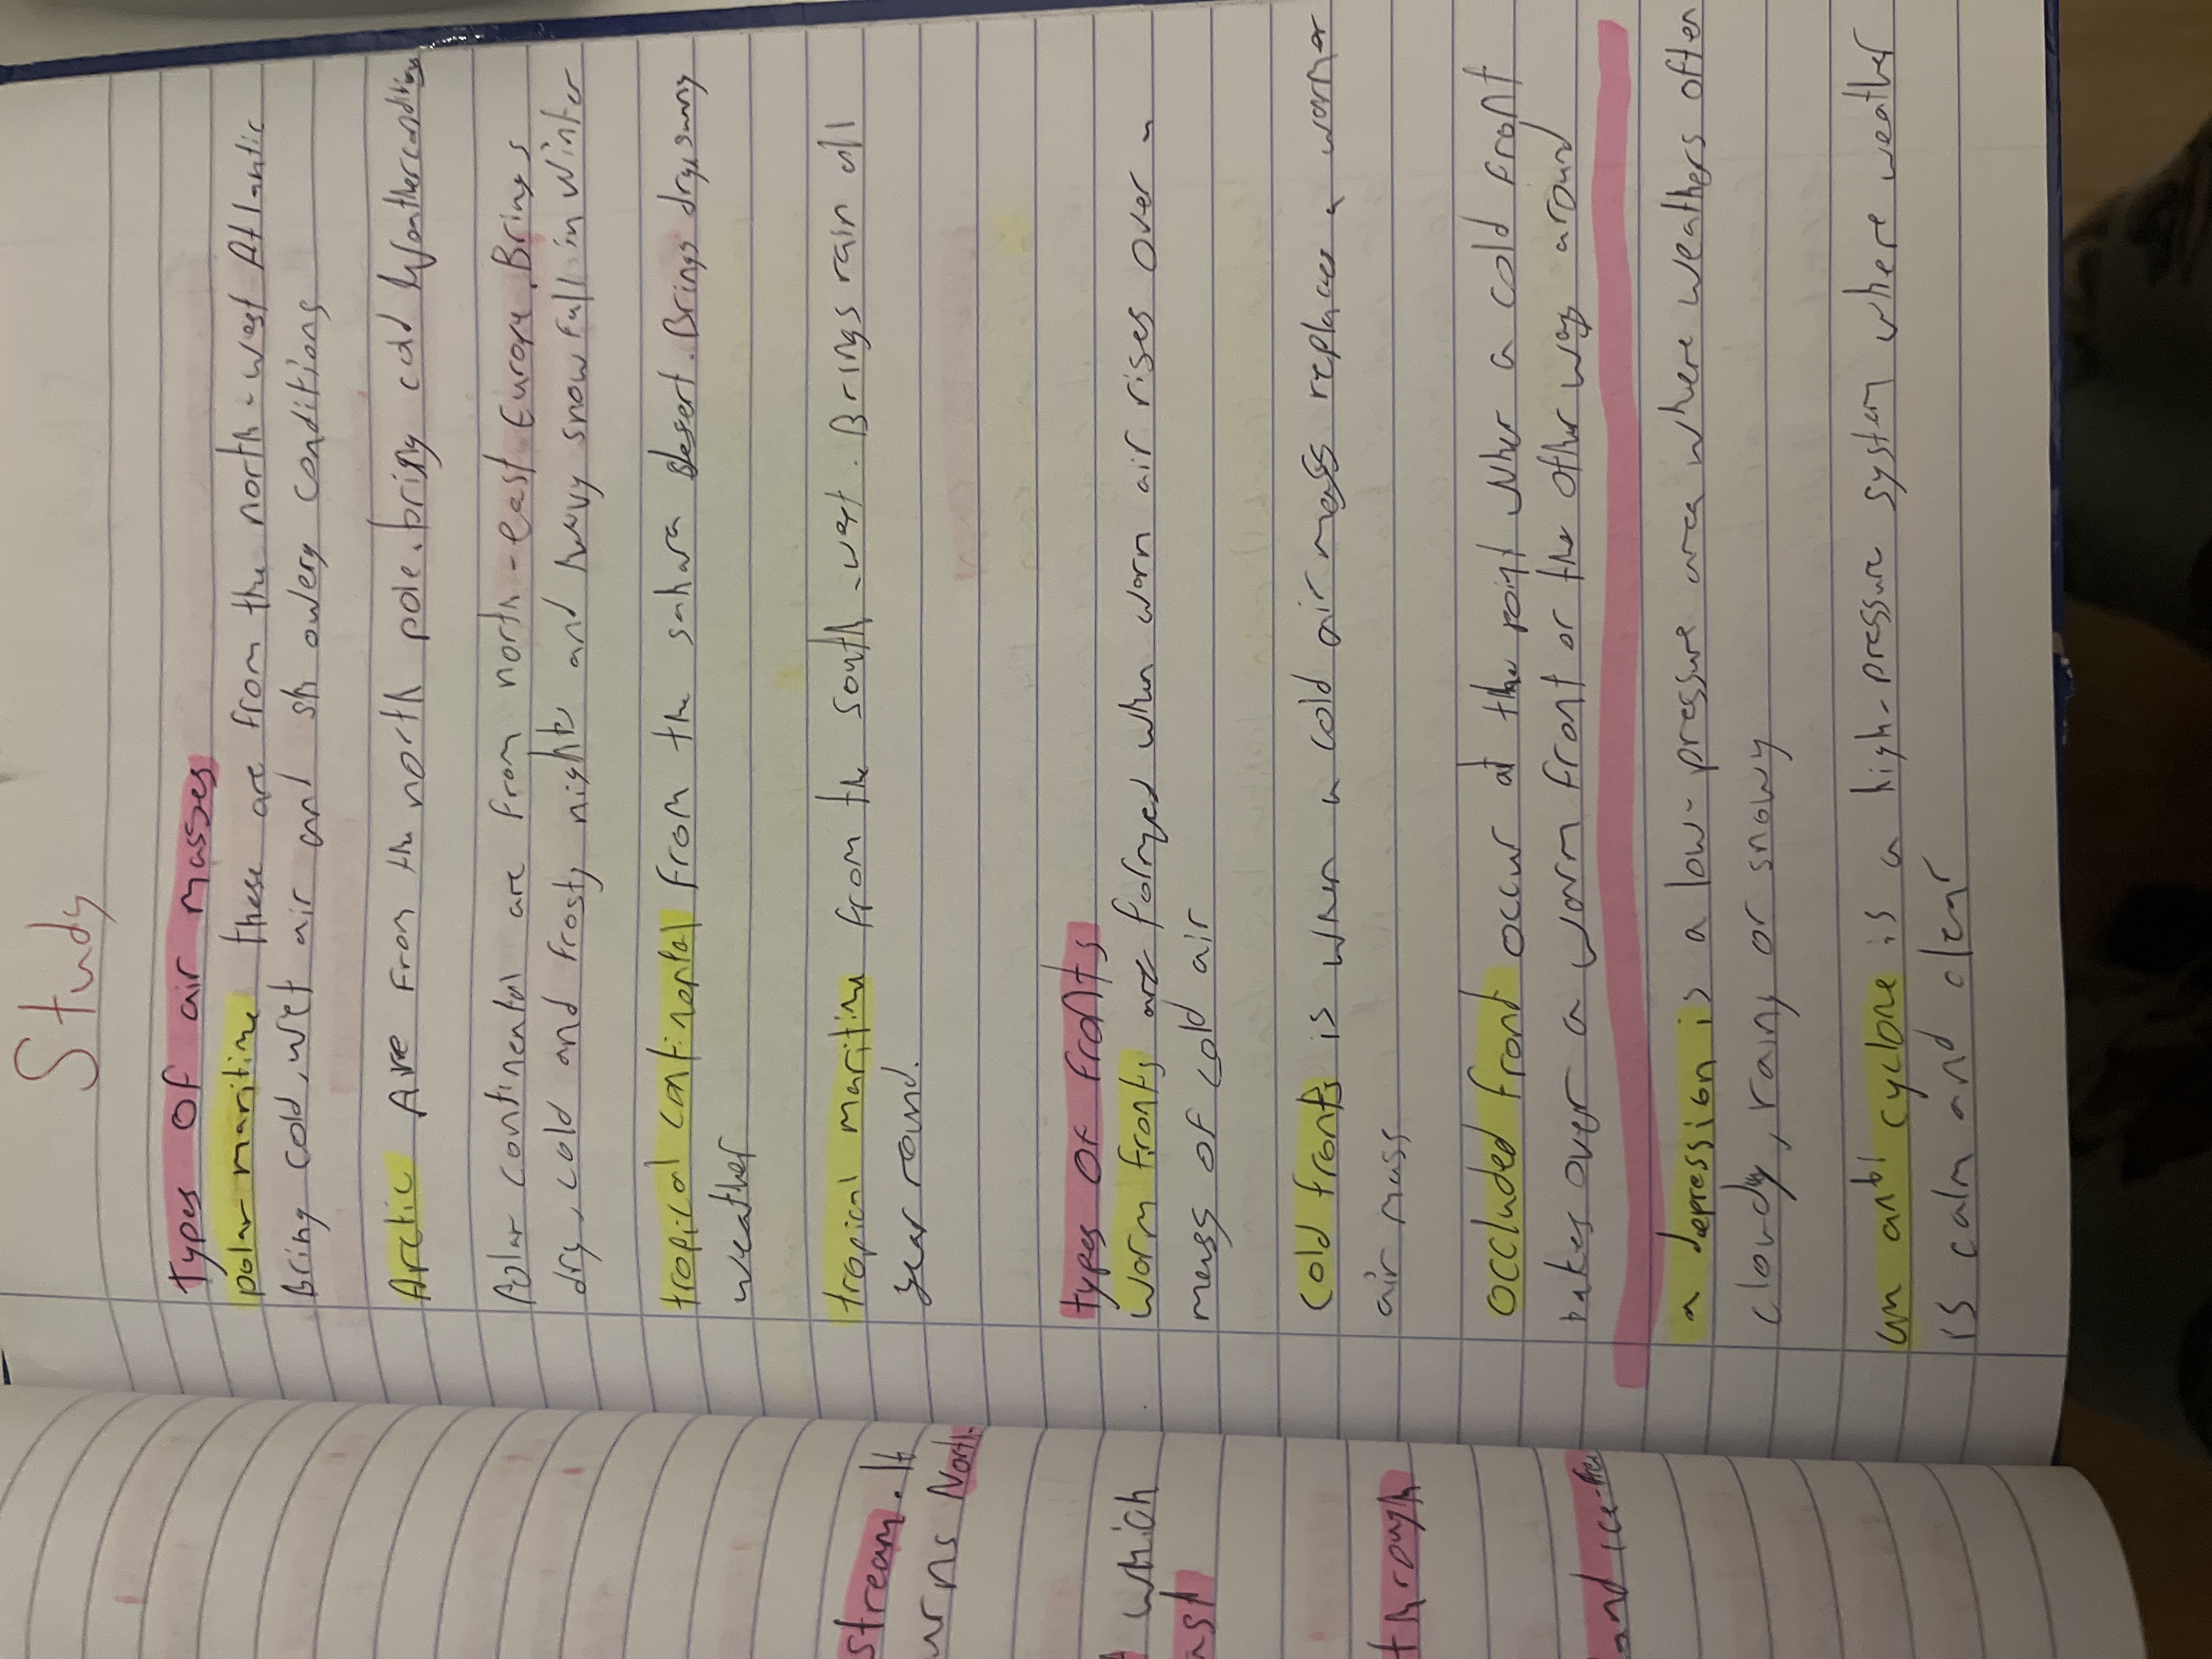 Study
types of air masses
polar maritime these are from the north-west Atlantic
Bring cold, wet air and showery conditions
Arctic Are From the north pole. bring cold Weather conditions
Polar continental are from north-east Europe. Brings
dry, cold and frosty nights and heavy snow fall in Winter
tropical continental from the sahara desert. Brings dry, sunny
weather
tropical maritime from the south-west. Brings rain all
year round.
types of fronts
Warm fronts are formed when warm air rises over a
mass of cold air
Cold fronts is when a cold air mass replaces a warmer
air mass
occluded front occur at the point when a cold front
takes over a warm front or the other way around
a depression is a low-pressure area where weathers often
cloudy, rainy or snowy
an anti cyclone is a high-pressure system where weather
is calm and clear
stream. It
urns North-
which
ast
through
and ice-free